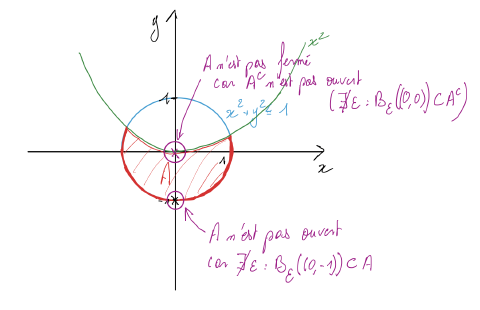 y
x²
A n'est pas fermé
car Aᶜ n'est pas ouvert
(∄ ε : B_ε((0,0)) ⊂ Aᶜ)
1
x² + y² = 1
1
x
A
-1
A n'est pas ouvert
car ∄ ε : B_ε((0,-1)) ⊂ A